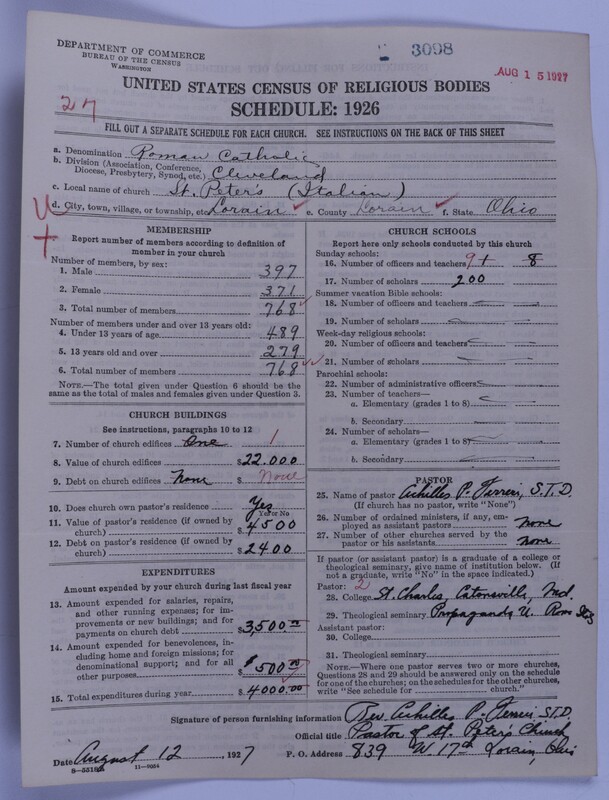 3098
AUG 15 1927
DEPARTMENT OF COMMERCE
BUREAU OF THE CENSUS
WASHINGTON
UNITED STATES CENSUS OF RELIGIOUS BODIES
SCHEDULE: 1926
27
FILL OUT A SEPARATE SCHEDULE FOR EACH CHURCH. SEE INSTRUCTIONS ON THE BACK OF THIS SHEET
a. Denomination Roman Catholic
b. Division (Association, Conference, Diocese, Presbytery, Synod, etc.) Cleveland
c. Local name of church St. Peter's (Italian)
d. City, town, village, or township, etc. Lorain e. County Lorain f. State Ohio
MEMBERSHIP
Report number of members according to definition of
member in your church
Number of members, by sex:
1. Male 397
2. Female 371
3. Total number of members 768
Number of members under and over 13 years old:
4. Under 13 years of age 489
5. 13 years old and over 279
6. Total number of members 768
NOTE.—The total given under Question 6 should be
same as the total of males and females given under Question 3.
CHURCH BUILDINGS
See instructions, paragraphs 10 to 12
7. Number of church edifices One 1
8. Value of church edifices $22.000
9. Debt on church edifices None $ None
10. Does church own pastor's residence Yes
Yes or No
11. Value of pastor's residence (if owned by
church) $4500
12. Debt on pastor's residence (if owned by
church) $2400
EXPENDITURES
Amount expended by your church during last fiscal year
13. Amount expended for salaries, repairs,
and other running expenses; for im-
provements or new buildings; and for
payments on church debt $3,500.00
14. Amount expended for benevolences, in-
cluding home and foreign missions; for
denominational support; and for all
other purposes $500.00
15. Total expenditures during year $4000.00
CHURCH SCHOOLS
Report here only schools conducted by this church
Sunday schools:
16. Number of officers and teachers 9+ 8
17. Number of scholars 200
Summer vacation Bible schools:
18. Number of officers and teachers
19. Number of scholars
Week-day religious schools:
20. Number of officers and teachers
21. Number of scholars
Parochial schools:
22. Number of administrative officers
23. Number of teachers—
a. Elementary (grades 1 to 8)
b. Secondary
24. Number of scholars—
a. Elementary (grades 1 to 8)
b. Secondary
PASTOR
25. Name of pastor Achilles P. Ferreri, S.T.D.
(If church has no pastor, write "None")
26. Number of ordained ministers, if any, em-
ployed as assistant pastors None
27. Number of other churches served by the
pastor or his assistants None
If pastor (or assistant pastor) is a graduate of a college or
theological seminary, give name of institution below. (If
not a graduate, write "No" in the space indicated.)
Pastor: 2
28. College St. Charles, Catonsville, Md.
29. Theological seminary Propaganda U. Rome Italy
Assistant pastor:
30. College
31. Theological seminary
NOTE.—Where one pastor serves two or more churches,
Questions 28 and 29 should be answered only on the schedule
for one of the churches; on the schedules for the other churches,
write "See schedule for church."
Signature of person furnishing information Rev. Achilles P. Ferreri S.T.D.
Official title Pastor of St. Peter's Church
Date August 12, 1927 P. O. Address 839 W. 17th Lorain, Ohio
8-5518a 11-9024